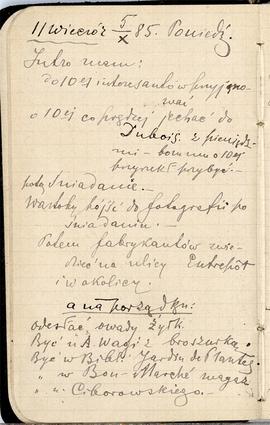 11 wieczór 5/X 85. Poniedź.
Jutro mam:
do 10 ej interesantów przyjmo-
wać
o 10 ej co prędzej jechać do
Dubois. z pieniędz-
mi – bom mu o 10 ej
przyrzekł przybyć.–
potem śniadanie.–
Wartoby pójść do fotografii po
śniadaniu.–
Potem fabrykantów zwie-
dzić na ulicy Entrepôt
i w okolicy.
a nie porządku:
odesłać owady Żyk.
Być u A. Wagi z broszurką.
Być w Bibl. Jardin de Plantes
" w Bon-Marché magaz
" u Ciborowskiego–